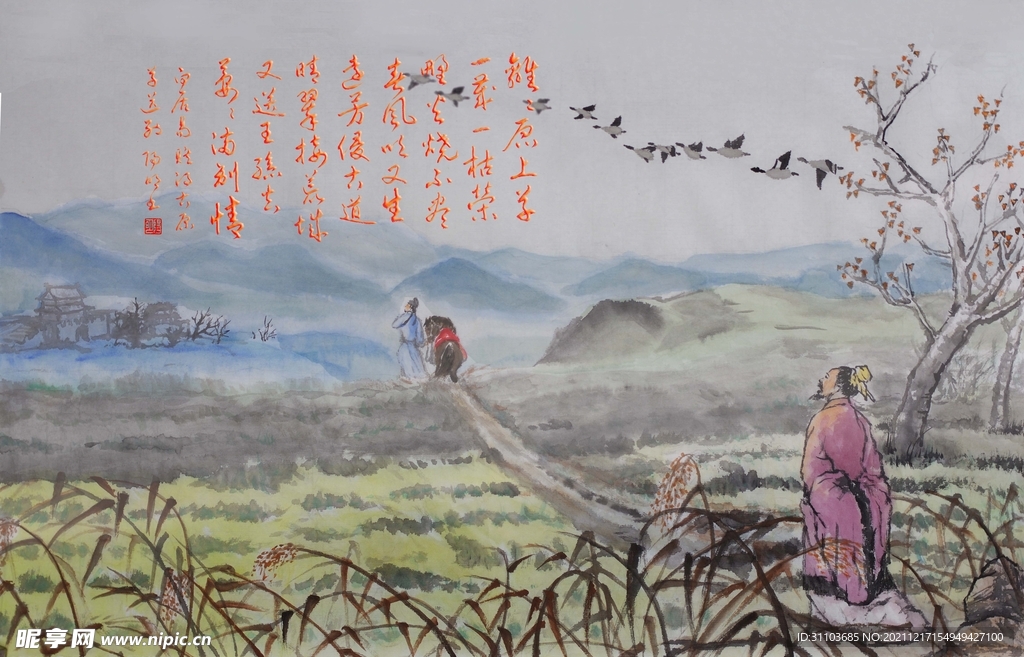 離原上草
一歲一枯榮
野火烧不盡
春風吹又生
遠芳侵古道
晴翠接荒城
又送王孫去
萋々滿別情
白居易賦得古原
草送別
昵享网 www.nipic.cn
ID:31103685 NO:20211217154949427100